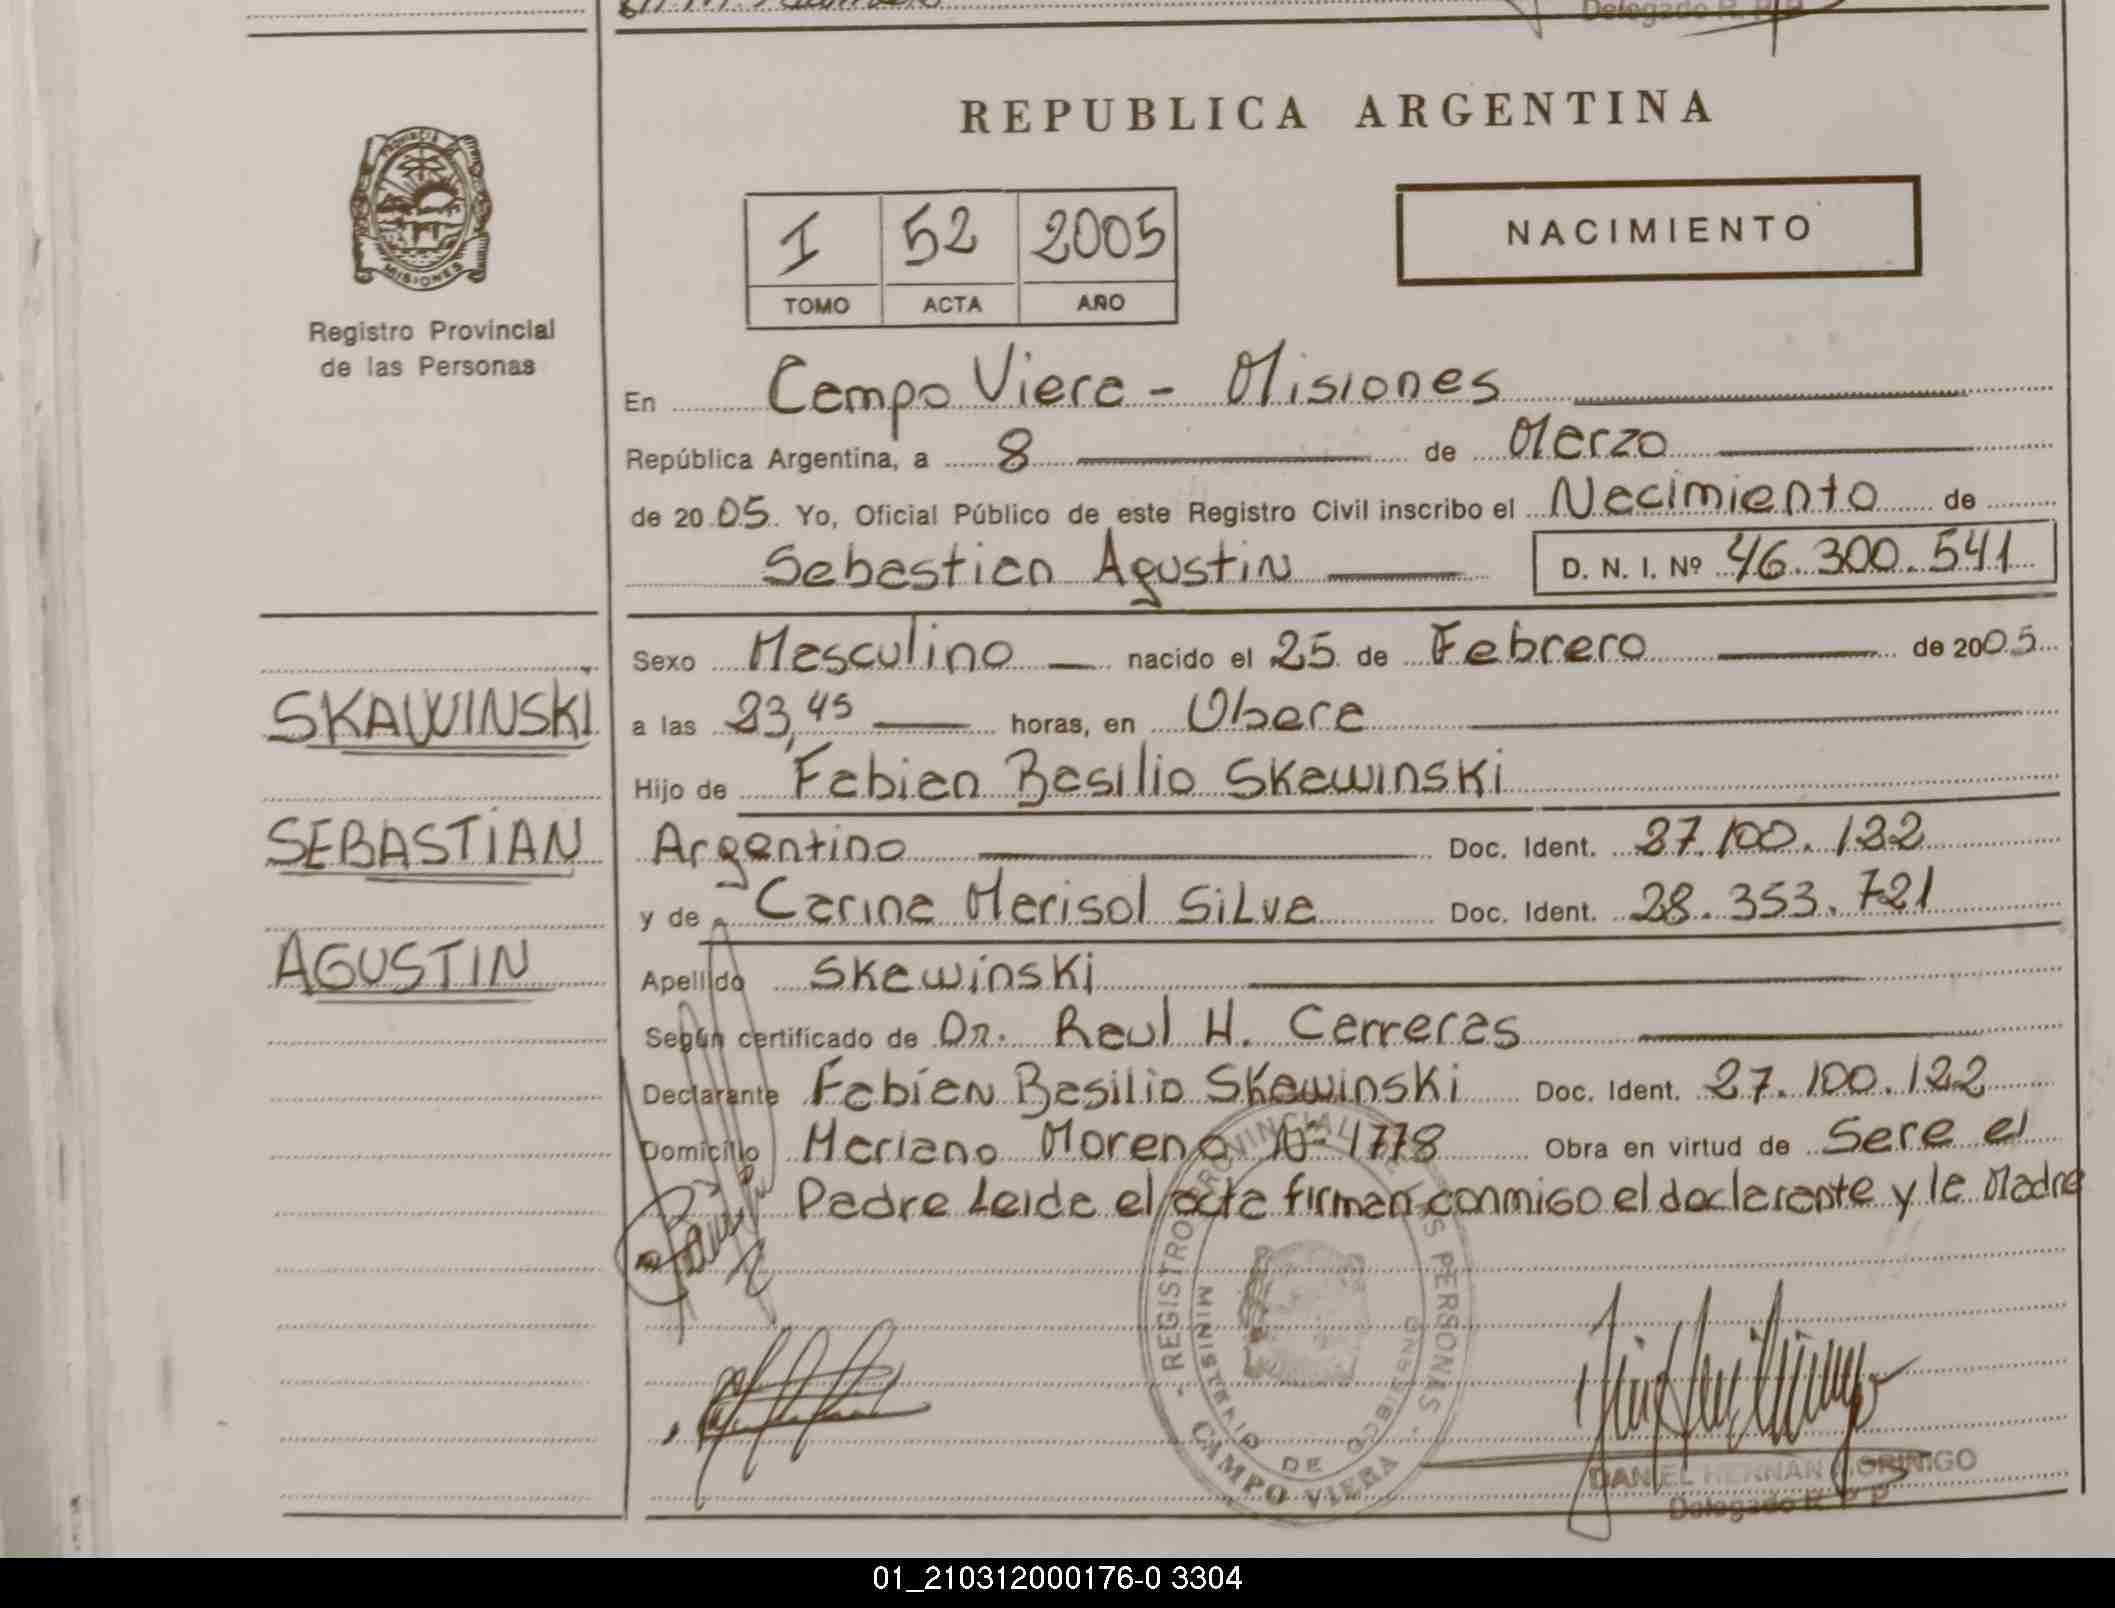 REPUBLICA ARGENTINA
PROVINCIA DE
MISIONES
Registro Provincial
de las Personas
I 52 2005
TOMO ACTA AÑO
NACIMIENTO
En Campo Viera - Misiones
República Argentina, a 8 de Marzo
de 2005 Yo, Oficial Público de este Registro Civil inscribo el Nacimiento de
Sebastian Agustin D. N. I. Nº 46.300.541
Sexo Masculino nacido el 25 de Febrero de 2005
SKAWINSKI
a las 23,45 horas, en Obera
Hijo de Fabian Basilio Skawinski
SEBASTIAN
Argentino Doc. Ident. 27.100.122
y de Carina Marisol Silva Doc. Ident. 28.353.721
AGUSTIN
Apellido Skawinski
Según certificado de Dr. Raul H. Carreras
Declarante Fabian Basilio Skawinski Doc. Ident. 27.100.122
Domicilio Mariano Moreno Nº 1778 Obra en virtud de Sere el
Padre Leida el acta firman conmigo el declarante y la Madre
REGISTRO PROVINCIAL DE LAS PERSONAS
MINISTERIO DE GOBIERNO
CAMPO VIERA
DANIEL HERNAN MORINIGO
Delegado R. P. P.
01_210312000176-0 3304